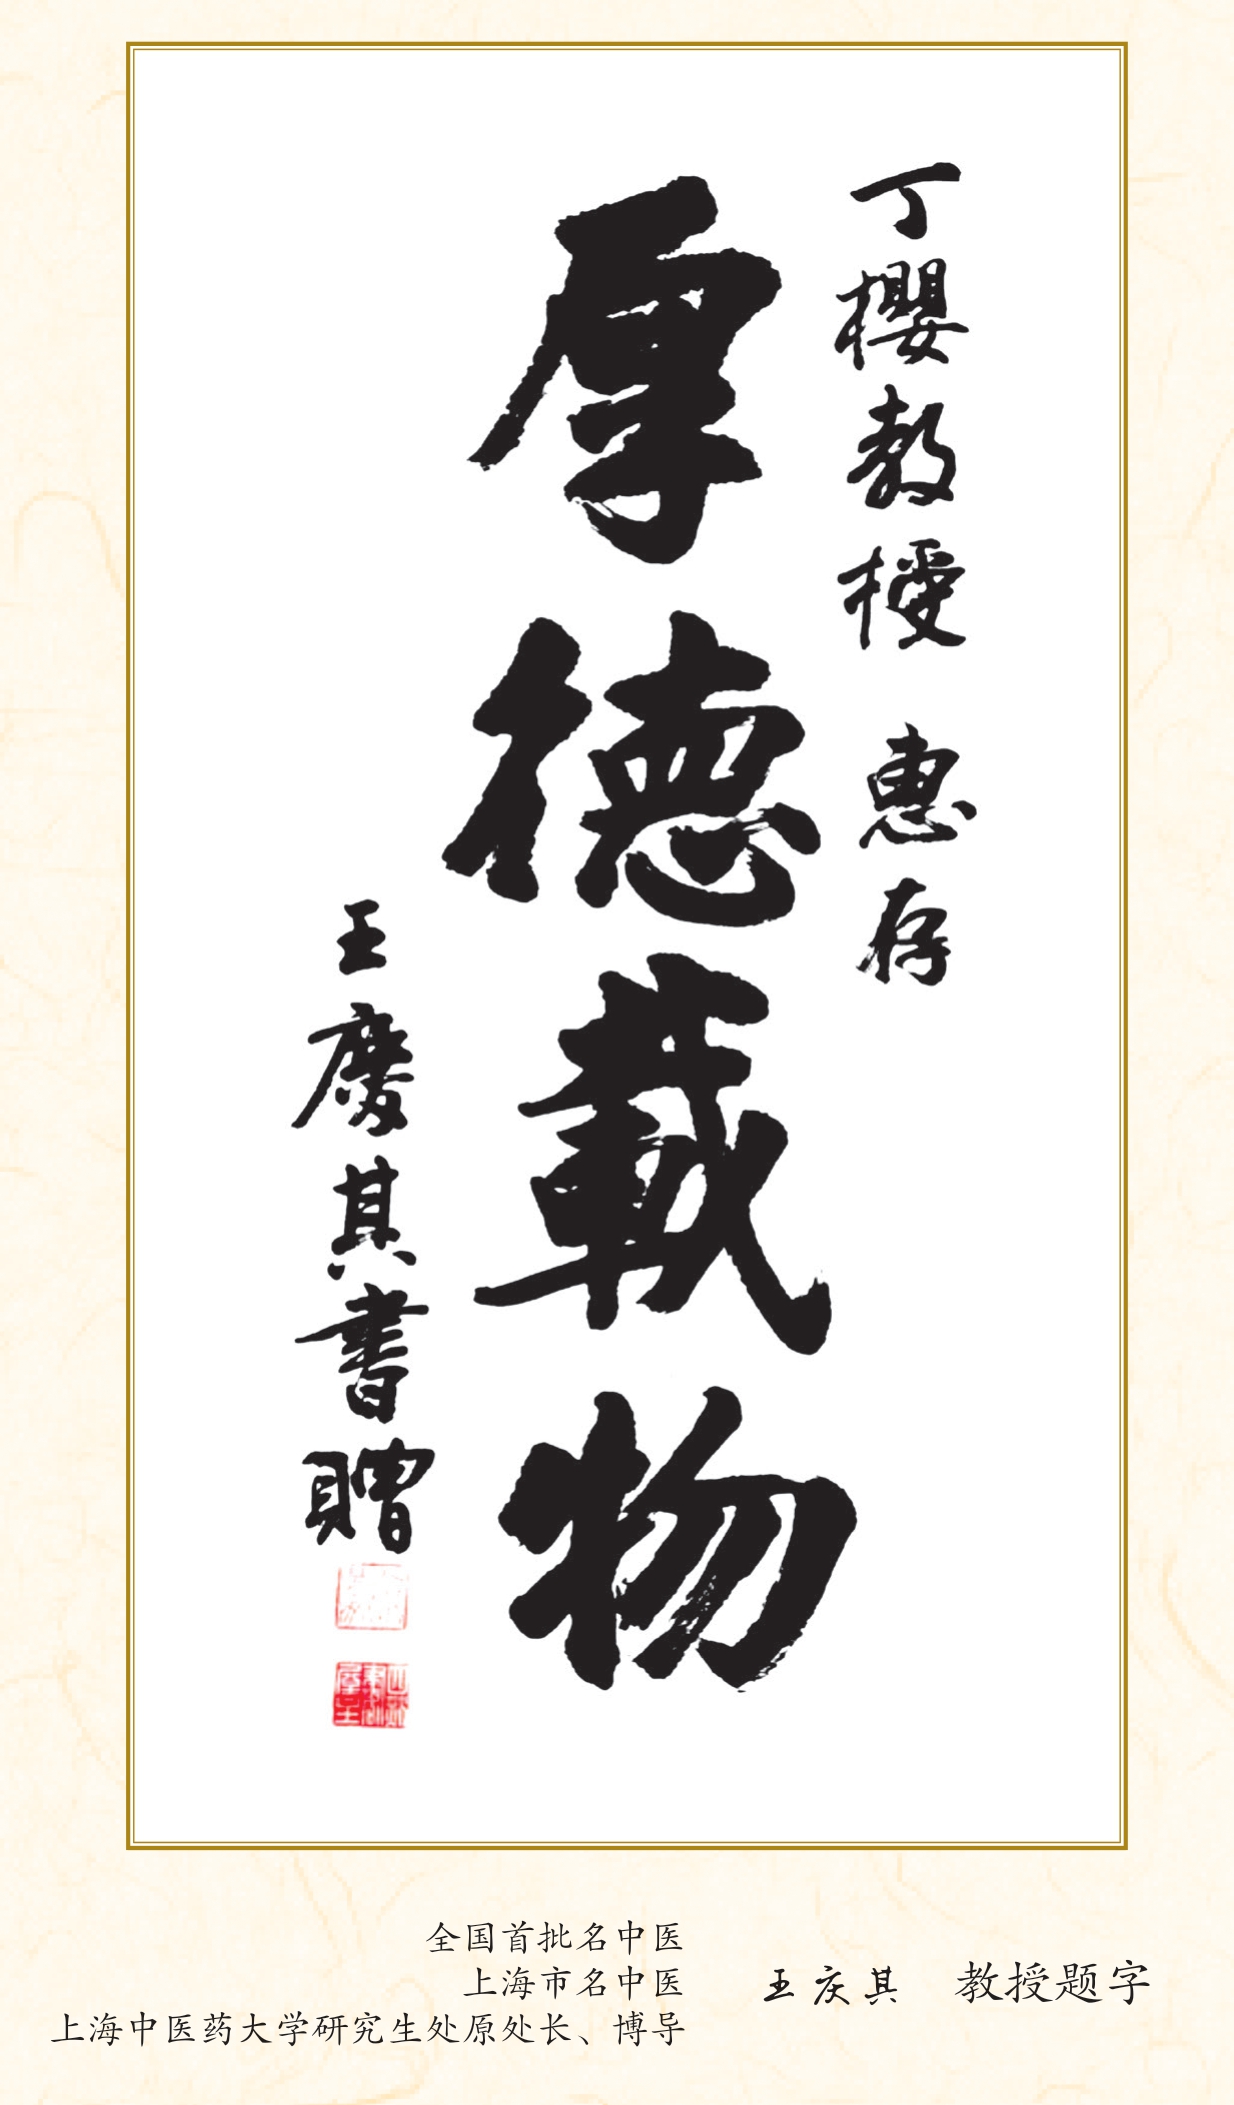 丁櫻教授 惠存
厚德載物
王慶其書贈
全国首批名中医
上海市名中医
上海中医药大学研究生处原处长、博导
王庆其 教授题字